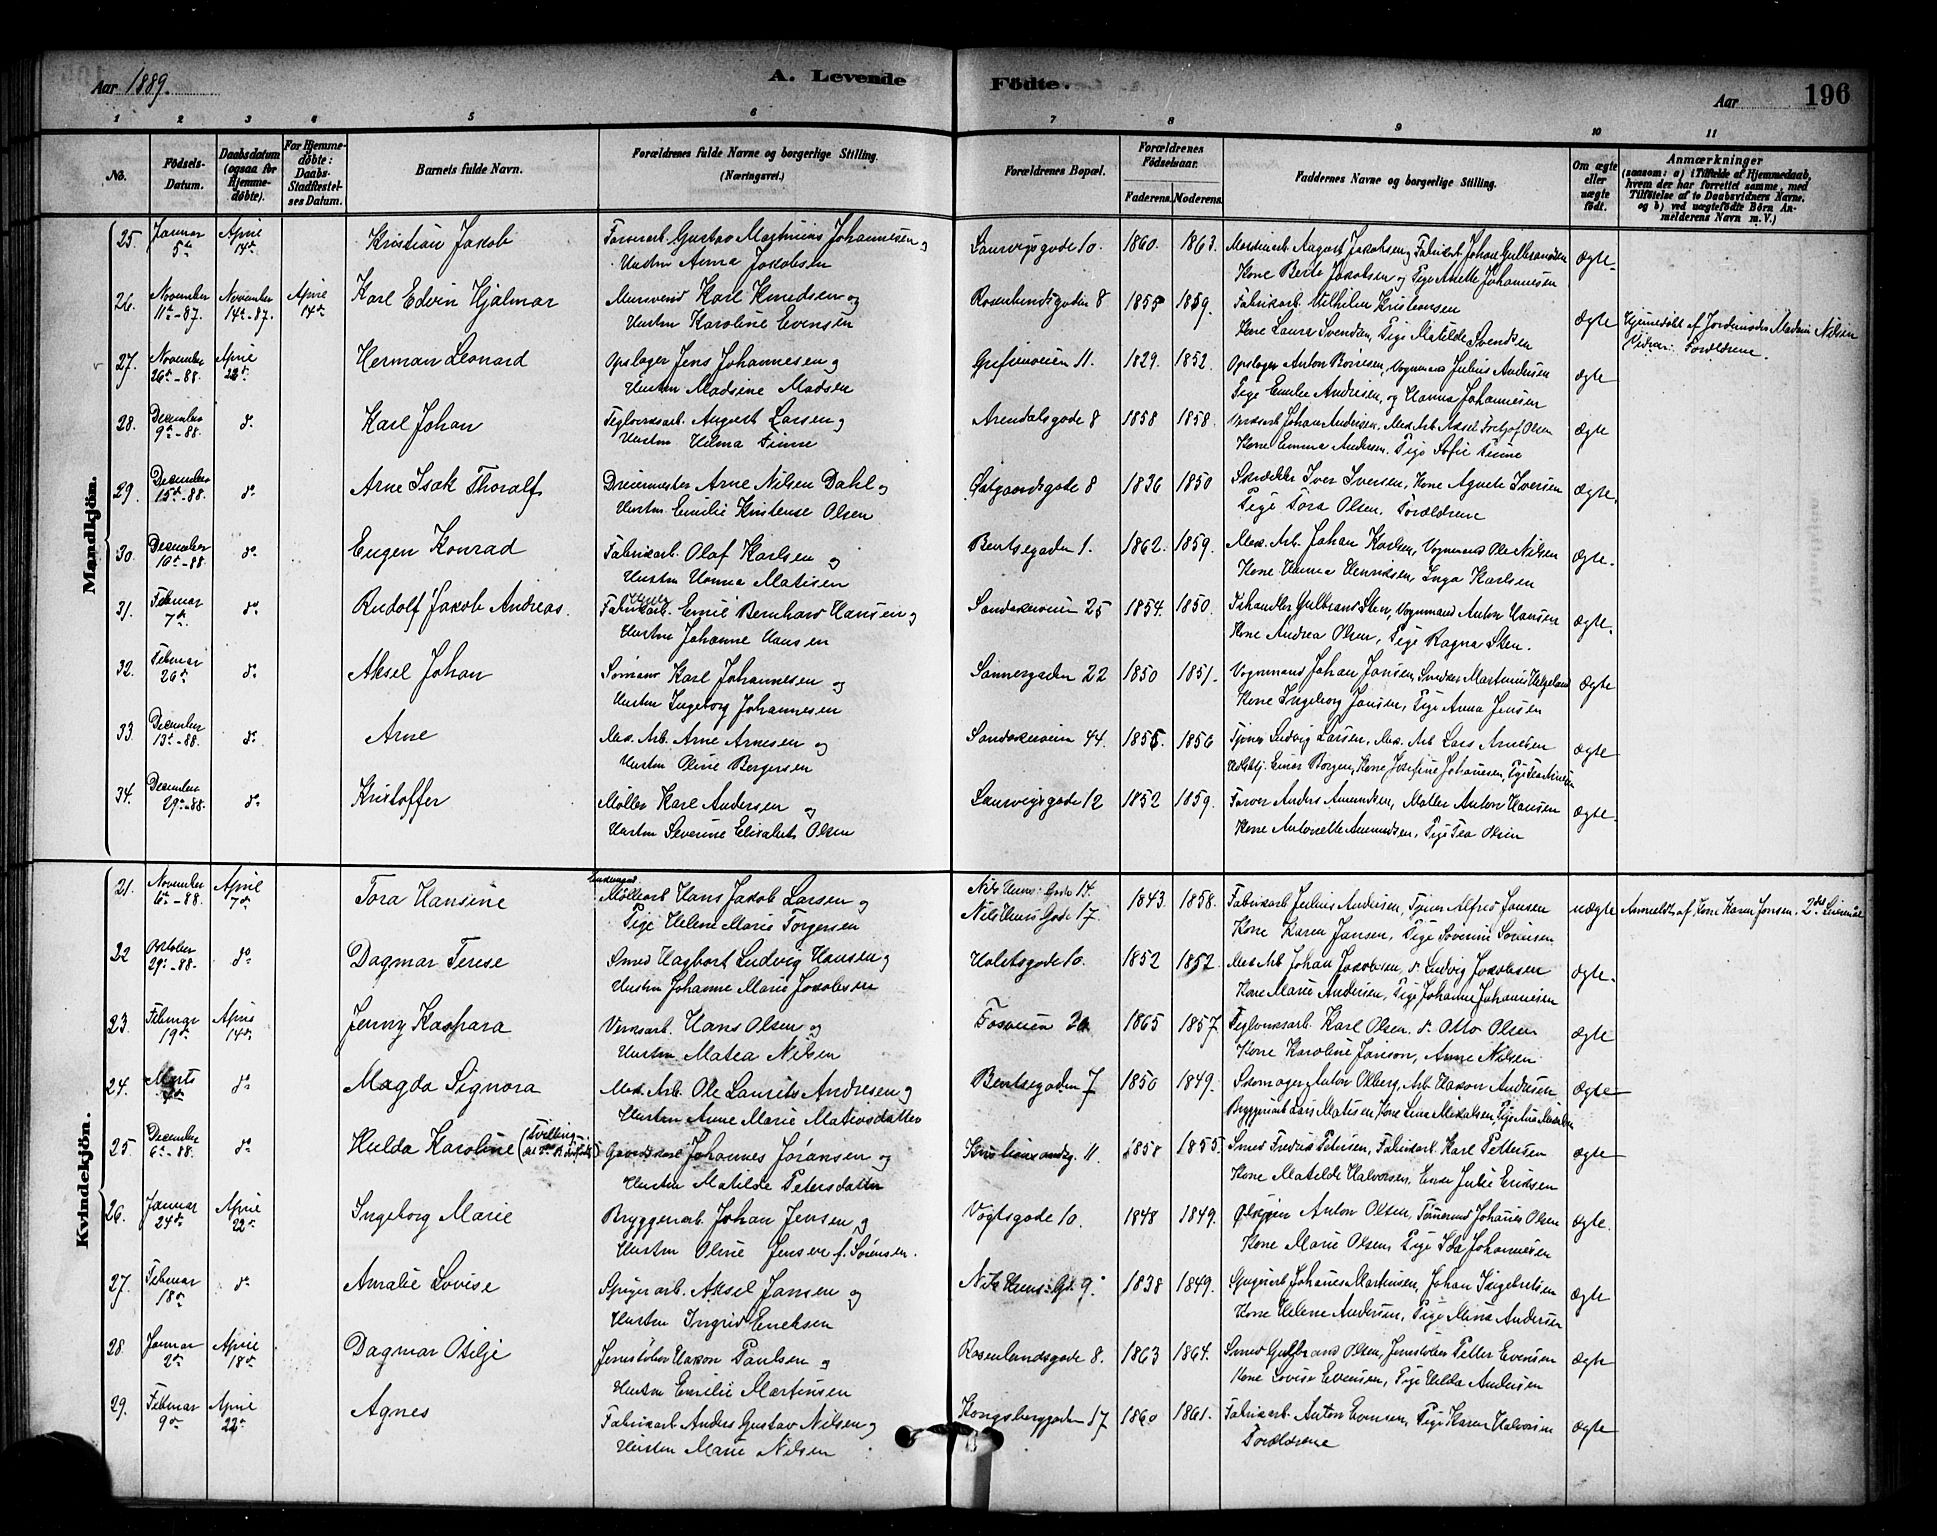 Aar 1889.
A. Levende Födte.
Aar
196
1 2 3 4 5 6 7 8 9 10 11
No.
Födsels-Datum.
Daabsdatum (ogsaa for Hjemmedöbte).
For Hjemmedöbte: Daabs-Stadfestelses Datum.
Barnets fulde Navn.
Forældrenes fulde Navne og borgerlige Stilling. (Næringsvei.)
Forældrenes Bopæl.
Forældrenes Födselsaar.
Faderens. Moderens.
Faddernes Navne og borgerlige Stilling.
Om ægte eller uægte födt.
Anmærkninger (saasom: a) i Tilfælde af Hjemmedaab, hvem der har forrettet samme, med Tilføielse af to Daabsvidners Navne. og b) ved uægtefödte Börn Anmelderens Navn m. V.)
Mandkjön.
25. Januar 5te April 14de Kristian Jakob Gustav Mathias Johannesen og Laurvigsgade 10. 1860. 1863. August Jakobsen, Johan Gulbrandsen ægte.
Hustru Anna Jakobsen Kone Berte Jakobsen og Pige Anette Johannesen
26. November 11te-87. November 14de-87. April 14de Karl Edvin Hjalmar Murersvend Karl Knudsen og Rosenlundsgaden 8 1855 1859. Fabrikarb. Vilhelm Kristiansen ægte Hjemmedøbt af Jordemoder Madam Nilsen
Hustru Karoline Evensen Kone Laura Svendsen, Pige Matilde Svendsen Forældrene.
27. November 26de-88. April 22de Herman Leonard Opslager Jens Johannesen og Grefsenveien 11. 1829. 1852. Opslager Anton Borresen, Vognmand Julius Andersen ægte
Hustru Madsine Madsen Pige Emilie Andresen, og Hanna Johannesen
28. December 9de-88. do Karl Johan Teglverksarb. August Larsen og Arendalsgade 8 1858 1858. Johan Andersen, Mek. Arb. Aksel Fritjof Olsen ægte
Hustru Helma Finne Kone Emma Andersen, Pige Sofie Finne
29. December 15de-88. do Arne Isak Thoralf Dreiermester Arne Nilsen Dahl og Østgaardsgade 8 1836 1850 Skrædder Iver Iversen, Kone Agnete Iversen ægte.
Hustru Emilie Kristense Olsen Pige Tora Olsen, Forældrene
30. December 10de-88 do Eugen Konrad Fabrikarb. Olaf Karlsen og Bentsegaden 1. 1862. 1859. Mek. Arb. Johan Karlsen, Vognmand Ole Nilsen ægte.
Hustru Hanna Matisen Kone Hanna Henriksen, Inga Karlsen
31. Februar 7de do Rudolf Jakob Andreas. Fabrikarb. Emil Bernhard Hansen og Sandakerveien 25 1854. 1850. Gulbrand Sten, Vognmand Anton Hansen ægte.
Hustru Johanne Hansen Kone Andrea Olsen, Pige Ragna Sten.
32. Februar 26de do Aksel Johan Sømand Karl Johannesen og Sannergaden 22 1850 1851. Vognmand Johan Jansen, Snedker Martinius Helgeland ægte
Hustru Ingeborg Johannesen Kone Ingeborg Jansen, Pige Anna Jensen
33. December 13de-88. do Arne Mek. Arb. Arne Arnesen og Sandakerveien 44. 1855. 1856 Ludvig Larsen, Mek. Arb Lars Arnesen ægte
Hustru Oline Bergersen Einar Borgen, Kone Josefine Johannesen, Pige Tea
34. December 29de-88. do Kristoffer Møller Karl Andersen og Laurvigsgade 12 1852 1859. Farver Anders Amundsen, Møller Anton Hansen ægte.
Hustru Severine Elisabet Olsen Kone Antonette Amundsen, Pige Tea Olsen
Kvindekjön.
21. November 6te-88. April 7de Tora Hansine Møllearb Hans Jakob Larsen og Nils Huus: Gade 14. 1843. 1858. Fabrikarb Julius Andersen, Alfred Jansen uægte Anmeldt af Kone Karen Jansen.
Pige Helene Marie Torgersen Nils Huus Gade 17. Kone Karen Jansen, Pige Severine Sørensen
22 October 29de-88. do Dagmar Terese Smed Hagbart Ludvig Hansen og Holstsgade 10. 1852 1852. Mek Arb Johan Jakobsen, do Ludvig Jakobsen ægte.
Hustru Johanne Marie Jakobsen Kone Marie Andersen, Pige Johanne Johannesen
23. Februar 19de April 14de Jenny Kaspara Verksarb. Hans Olsen og Fosveien 20 1865 1857. Teglverksarb. Karl Olsen. do Otto Olsen ægte
Hustru Matea Nilsen Kone Karoline Janson, Anne Nilsen.
24. Marts do Magda Signora Mek. Arb. Ole Laurits Andresen og Bentsegaden 7 1850 1849. Skomager Anton Olberg, Arb Hakon Andresen ægte
Hustru Anne Marie Mathiasdatter Bryggeriarb Lars Matisen,
25. December 6te-88. do Hulda Karoline (Tvilling Gaardskarl Johannes Jøransen og Kristiansandsg. 11. 1858 1855. Smed Fredrik Petersen, Fabrikarb. Karl Pettersen ægte
Hustru Matilde Petersdatter Kone Matilde Halvorsen, Enke Julie Eriksen
26. Januar 24de April 22de Ingeborg Marie Bryggeriarb. Johan Jensen og Vogtsgade 10. 1848 1849. Anton Olsen, Johannes Olsen ægte.
Hustru Oline Jensen f. Sørensen. Kone Marie Olsen, Pige Ida Johannesen
27. Februar 18de do Amalie Lovise Spigerarb. Aksel Jansen og Nils Huus: Gd. 9. 1838 1849. Spigerarb Johannes Martinsen, Johan Ingebretsen ægte
Hustru Ingrid Eriksen Kone Helene Andersen, Pige Mina Andersen
28. Januar 2de April 18de Dagmar Otilje Jernstøber Hakon Paulsen og Rosenlundsgade 8. 1863 1864. Smed Gulbrand Olsen, Jernstøber Petter Evensen ægte
Hustru Emilie Martinsen Kone Lovise Evensen, Pige Hilda Andersen
29. Februar 9de April 22de Agnes Fabrikarb. Anders Gustav Nilsen og Kongsberggaden 17 1860 1861. Fabrikarb. Anton Evensen, Pige Karen Halvorsen ægte
Hustru Marie Nilsen Forældrene